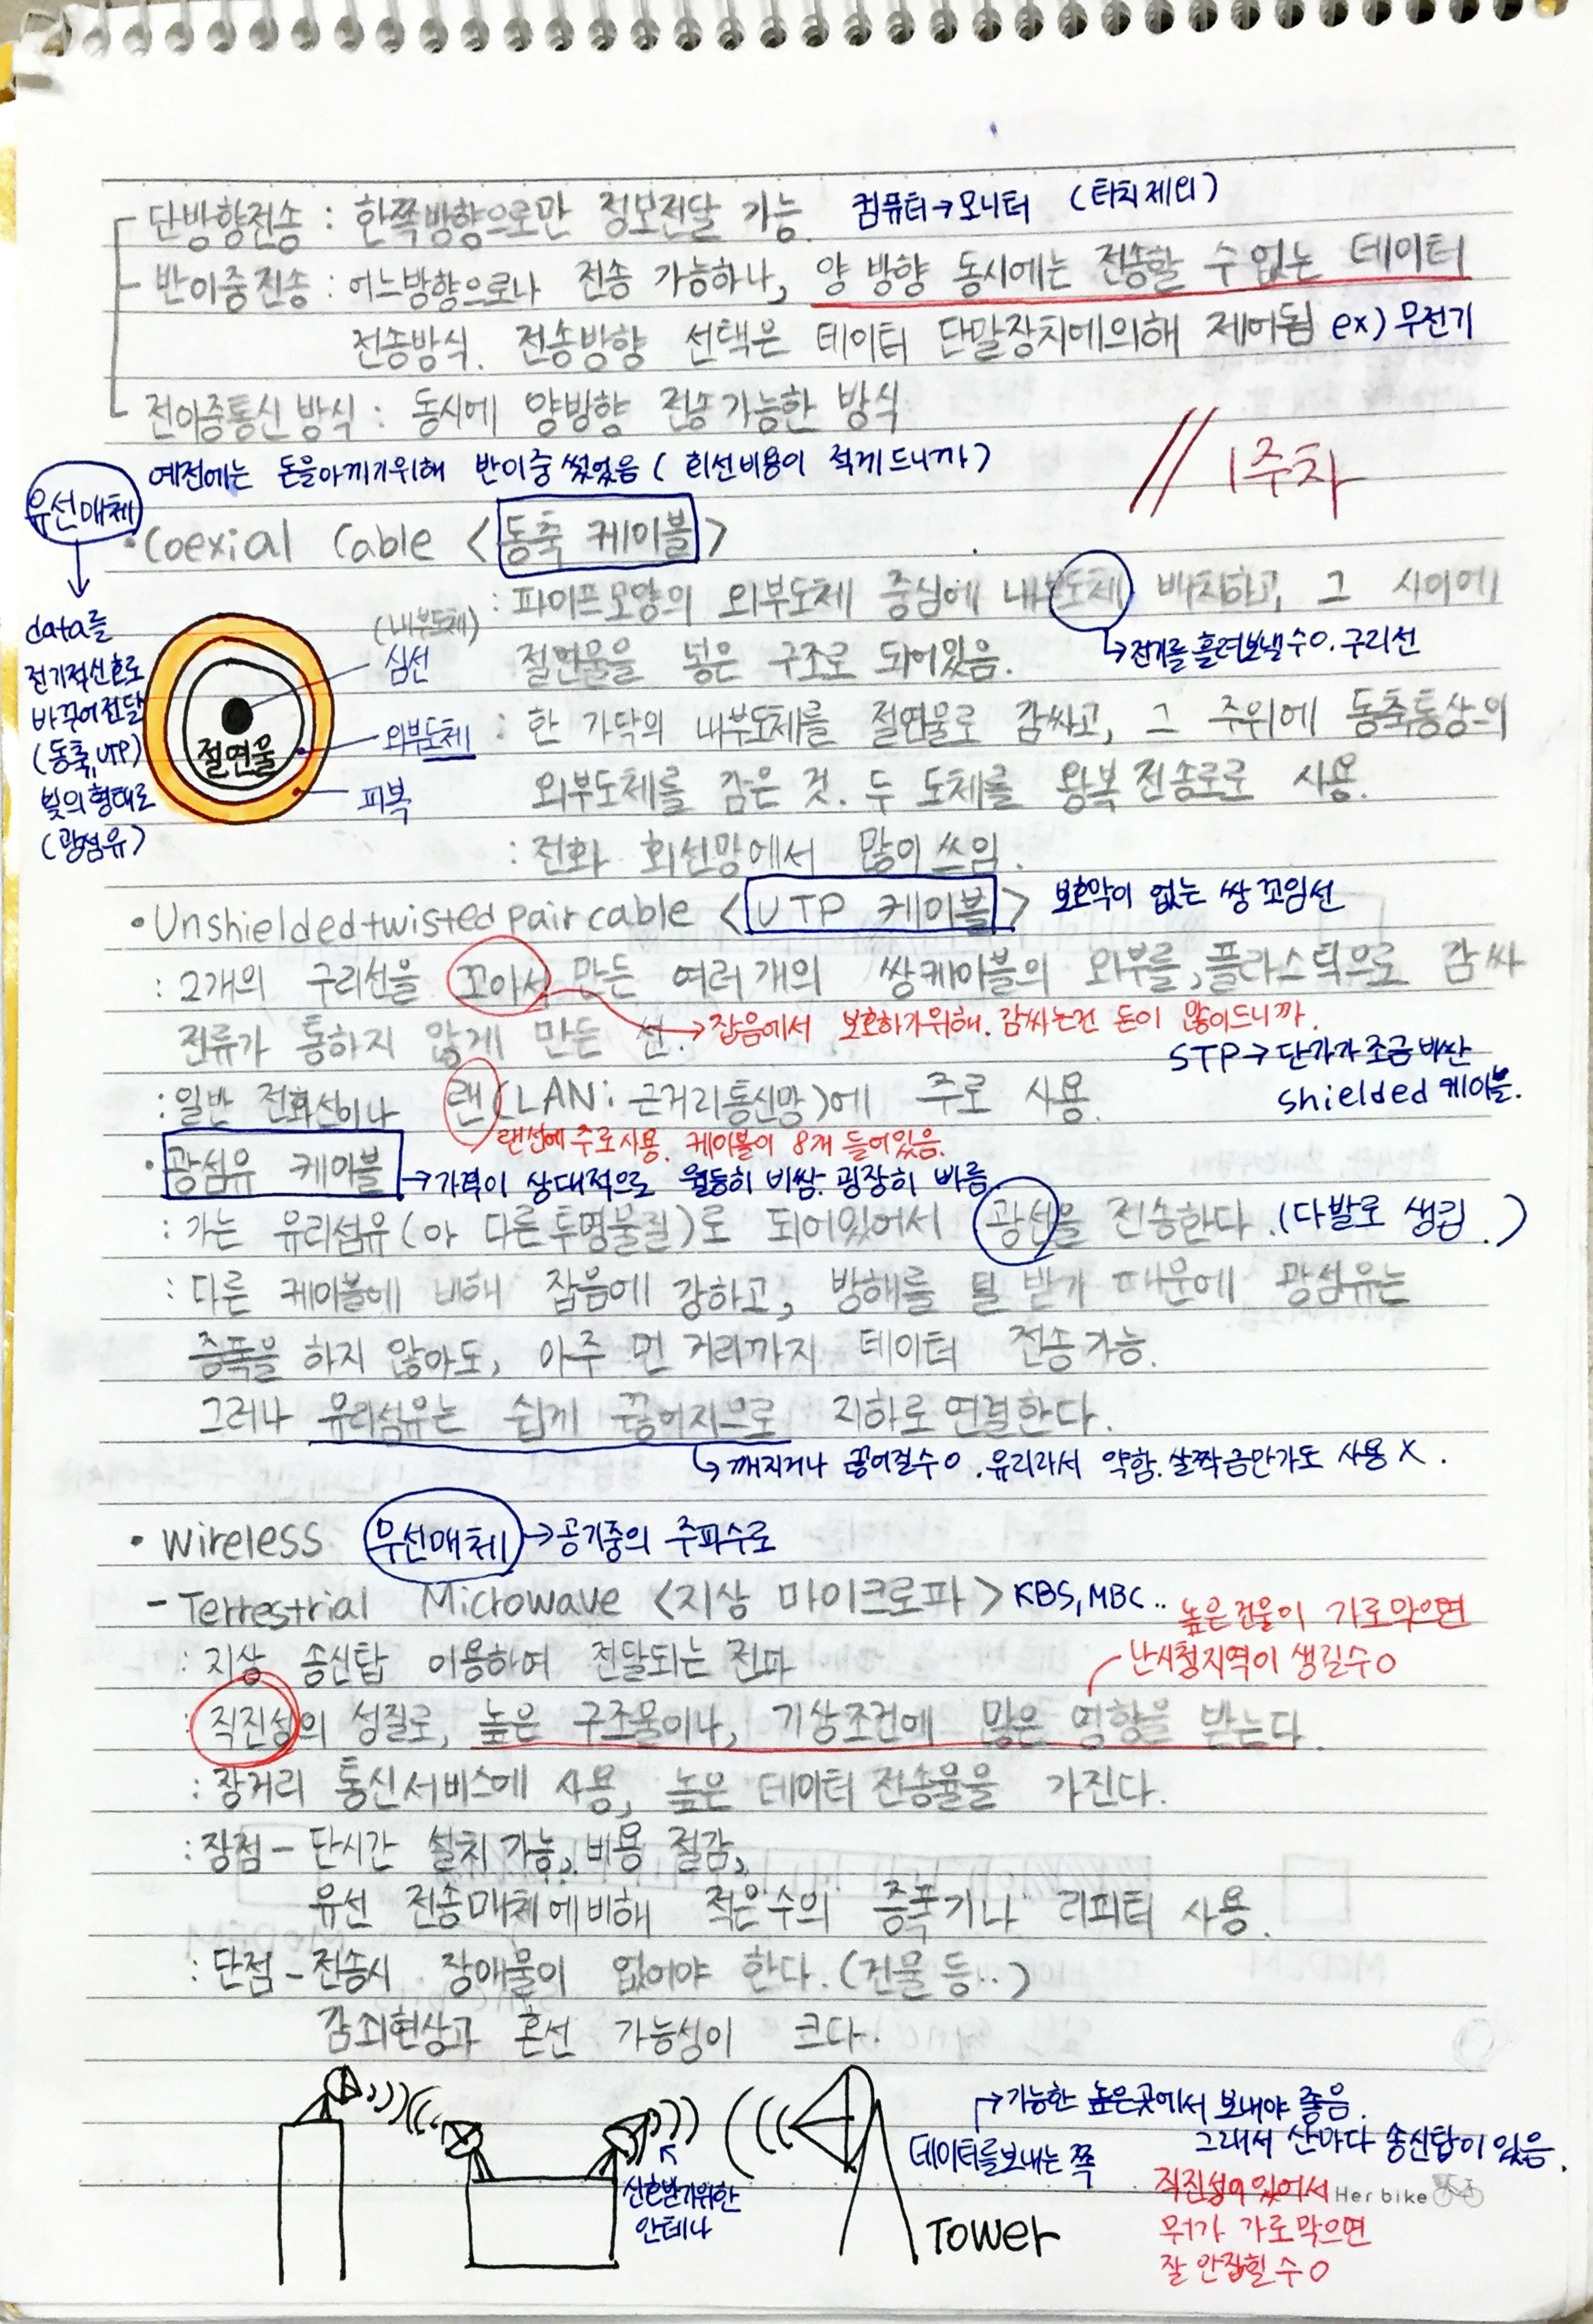 단방향전송 : 한쪽방향으로만 정보전달 가능. 컴퓨터→모니터 (터치제외)
반이중전송 : 어느방향으로나 전송 가능하나, 양 방향 동시에는 전송할 수 없는 데이터
전송방식. 전송방향 선택은 데이터 단말장치에의해 제어됨 ex) 무전기
전이중통신 방식 : 동시에 양방향 전송가능한 방식
예전에는 돈을아끼기위해 반이중 썼었음 (회선비용이 적게드니까)
// 1주차
유선매체
data를
전기적신호로
바꾸어전달
(동축,UTP)
빛의형태로
(광섬유)
• Coexial Cable <동축 케이블>
: 파이프모양의 외부도체 중심에 내부도체 배치하고, 그 사이에
→전기를 흘려보낼수O. 구리선
절연물을 넣은 구조로 되어있음.
(내부도체)
심선
절연물
외부도체
피복
: 한 가닥의 내부도체를 절연물로 감싸고, 그 주위에 동축통상의
외부도체를 감은 것. 두 도체를 왕복 전송로로 사용.
: 전화 회선망에서 많이 쓰임.
• Unshielded twisted pair cable <UTP 케이블> 보호막이 없는 쌍 꼬임선
: 2개의 구리선을 꼬아서 만든 여러개의 쌍케이블의 외부를, 플라스틱으로 감싸
→잡음에서 보호하기위해. 감싸는건 돈이 많이드니까.
전류가 통하지 않게 만든 선.
STP→단가가 조금 비싼
shielded 케이블.
: 일반 전화선이나 랜(LAN: 근거리통신망)에 주로 사용.
랜선에 주로사용. 케이블이 8개 들어있음.
• 광섬유 케이블 →가격이 상대적으로 월등히 비쌈. 굉장히 빠름
: 가는 유리섬유(아 다른투명물질)로 되어있어서 광선을 전송한다. (다발로 생김.)
: 다른 케이블에 비해 잡음에 강하고, 방해를 덜 받기 때문에 광섬유는
증폭을 하지 않아도, 아주 먼 거리까지 데이터 전송가능.
그러나 유리섬유는 쉽게 끊어지므로 지하로 연결한다.
→깨지거나 끊어질수O. 유리라서 약함. 살짝금만가도 사용X.
• Wireless 무선매체→공기중의 주파수로
- Terrestrial Microwave <지상 마이크로파> KBS, MBC..
높은건물이 가로막으면
난시청지역이 생길수O
: 지상 송신탑 이용하여 전달되는 전파
: 직진성의 성질로, 높은 구조물이나, 기상조건에 많은 영향을 받는다.
: 장거리 통신서비스에 사용, 높은 데이터 전송율을 가진다.
: 장점 - 단시간 설치 가능, 비용 절감,
유선 전송매체에비해 적은수의 증폭기나 리피터 사용.
: 단점 - 전송시 장애물이 없어야 한다. (건물 등..)
감쇠현상과 혼선 가능성이 크다.
신호받기위한
안테나
Tower
→가능한 높은곳에서 보내야 좋음.
데이터를보내는 쪽
그래서 산마다 송신탑이 있음.
직진성이 있어서
뭐가 가로막으면
잘 안잡힐 수 O
Her bike